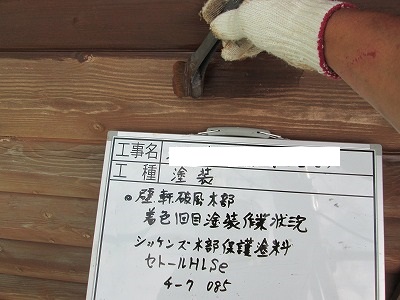 工事名
工種 塗装
壁.軒.破風木部
着色1回目塗装作業状況
シッケンズ木部保護塗料
セトールHLSe
チーク 085